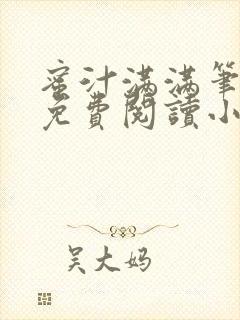 蜜汁满满笔
免费阅读小
吴大妈